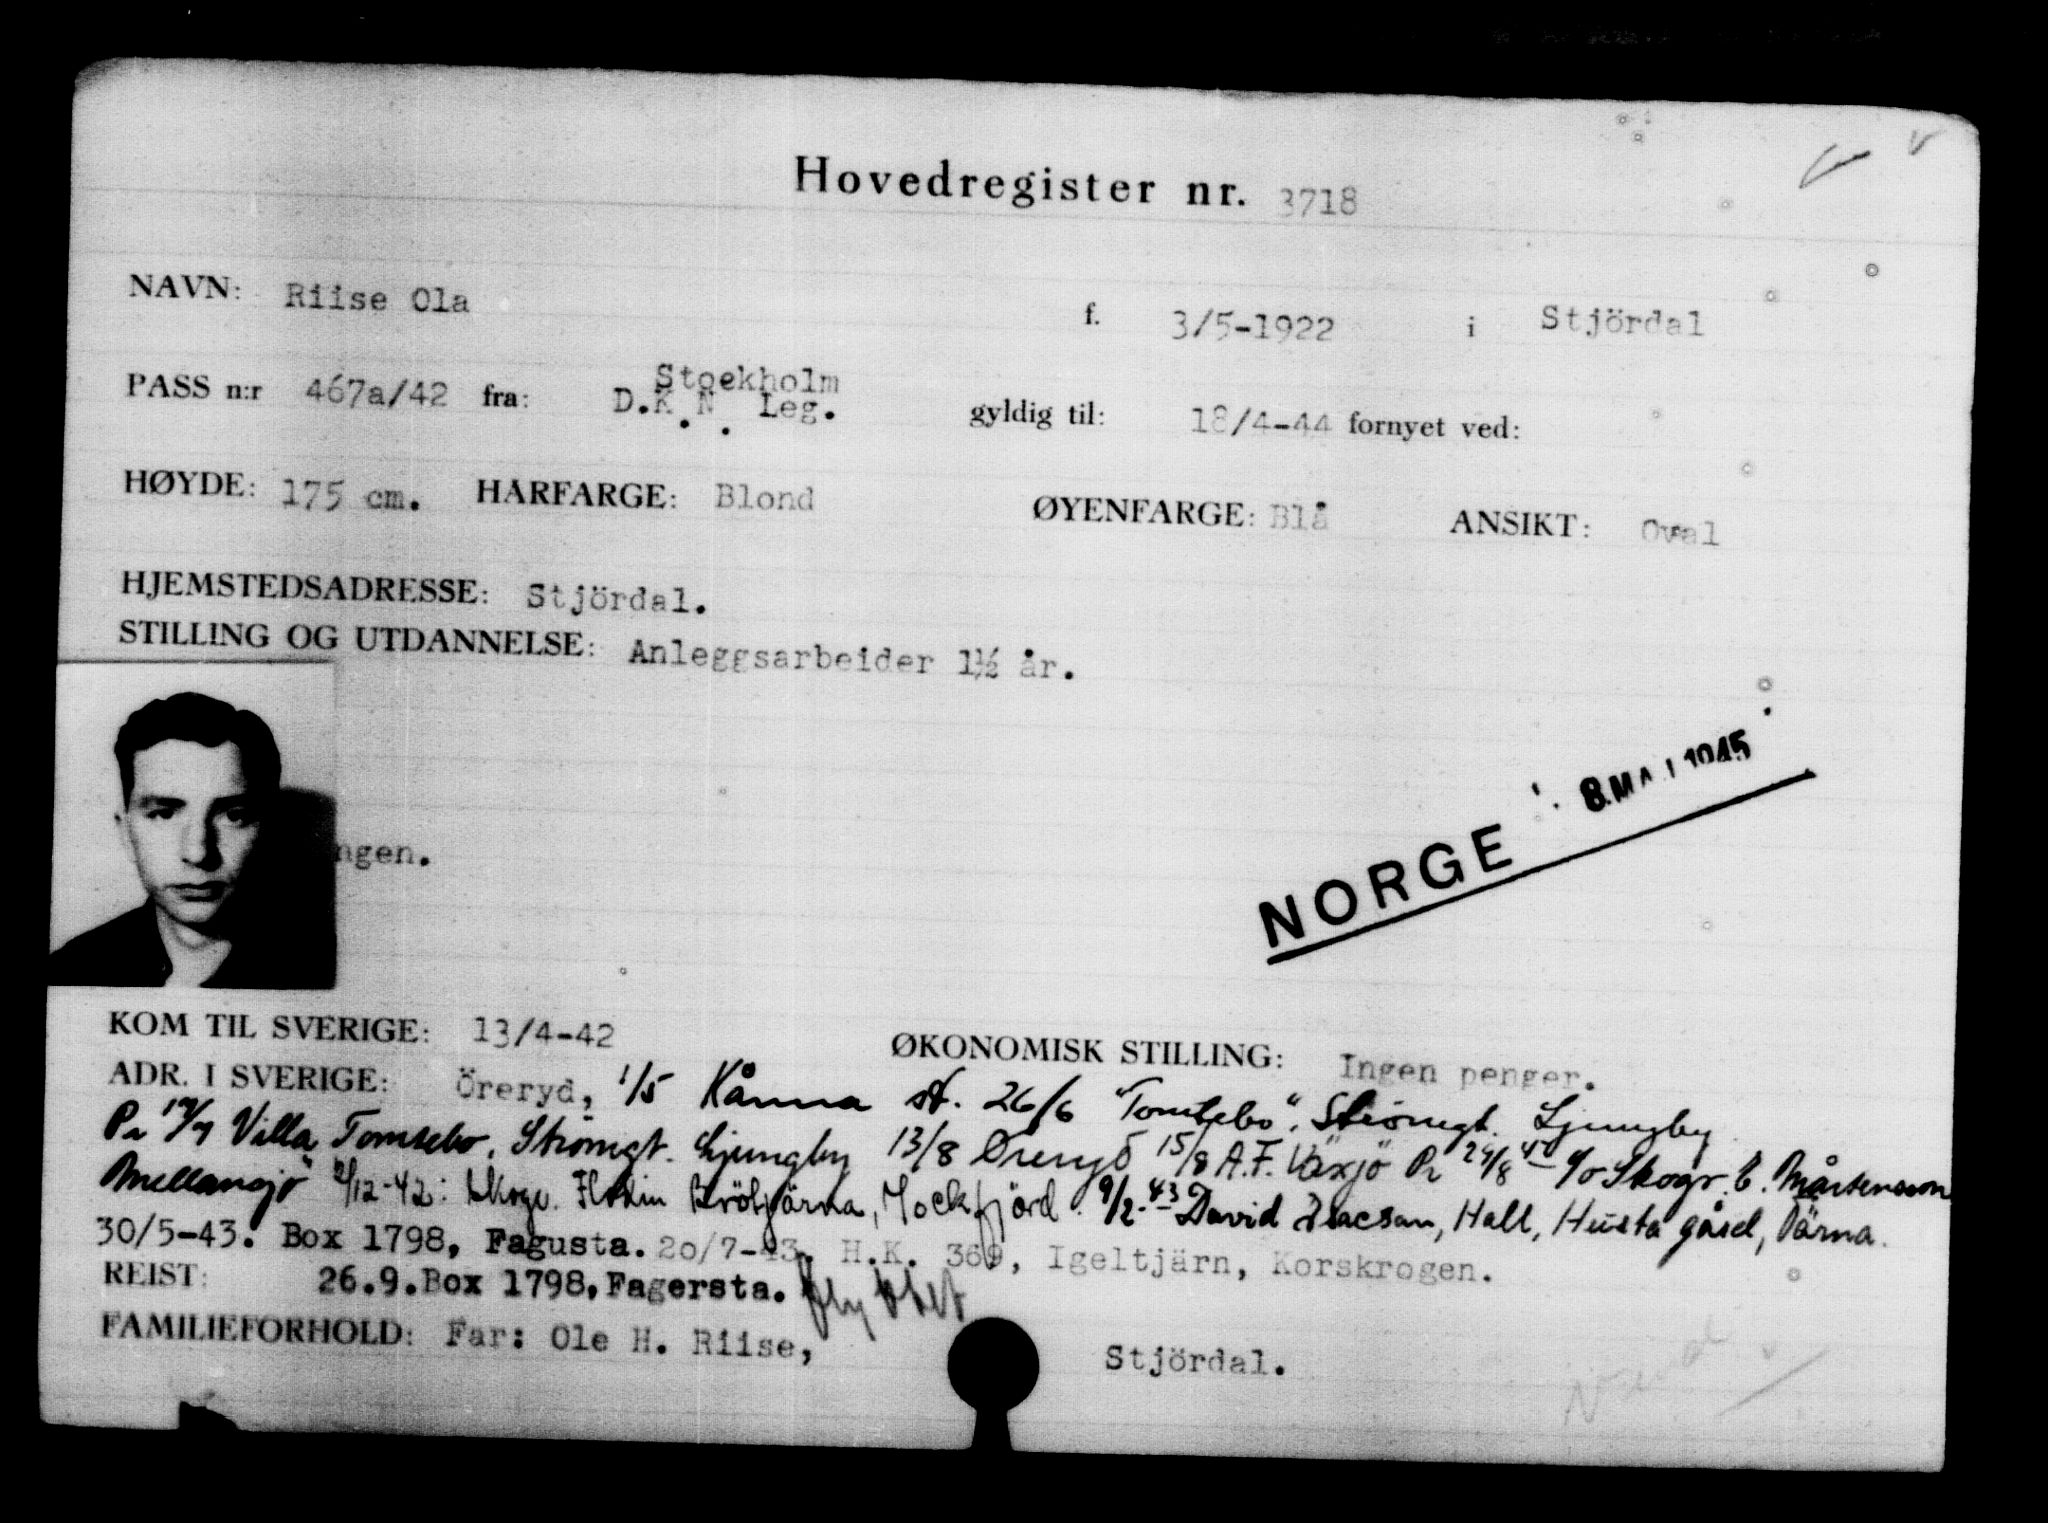 Hovedregister nr. 3718
NAVN: Riise Ola f. 3/5-1922 i Stjördal
Stockholm
PASS n:r 467a/42 fra: D.K.N. Leg. gyldig til: 18/4-44 fornyet ved:
HØYDE: 175 cm. HARFARGE: Blond ØYENFARGE: Blå ANSIKT: Oval
HJEMSTEDSADRESSE: Stjördal.
STILLING OG UTDANNELSE: Anleggsarbeider 1½ år.
8. MAJ 1945
NORGE
ngen.
KOM TIL SVERIGE: 13/4-42 ØKONOMISK STILLING: Ingen penger.
ADR. I SVERIGE: Öreryd, 1/5 Kånna st. 26/6 "Tomtebo", Strömgt. Ljungby
Villa Tomtebo, Strömgt. Ljungby 13/8 Öreryd 15/8 A.F. Växjö c/o Skogv. E. Mårtensson
Mellansjö /12-42: Skogv. Flodin Brötjärna, Mockfjärd. 9/2-43 David Isacsson, Hall, Husta gård, Pärna.
30/5-43. Box 1798, Fagusta. 20/7-43. H.K. 369, Igeltjärn, Korskrogen.
REIST: 26.9. Box 1798, Fagersta.
FAMILIEFORHOLD: Far: Ole H. Riise, Stjördal.